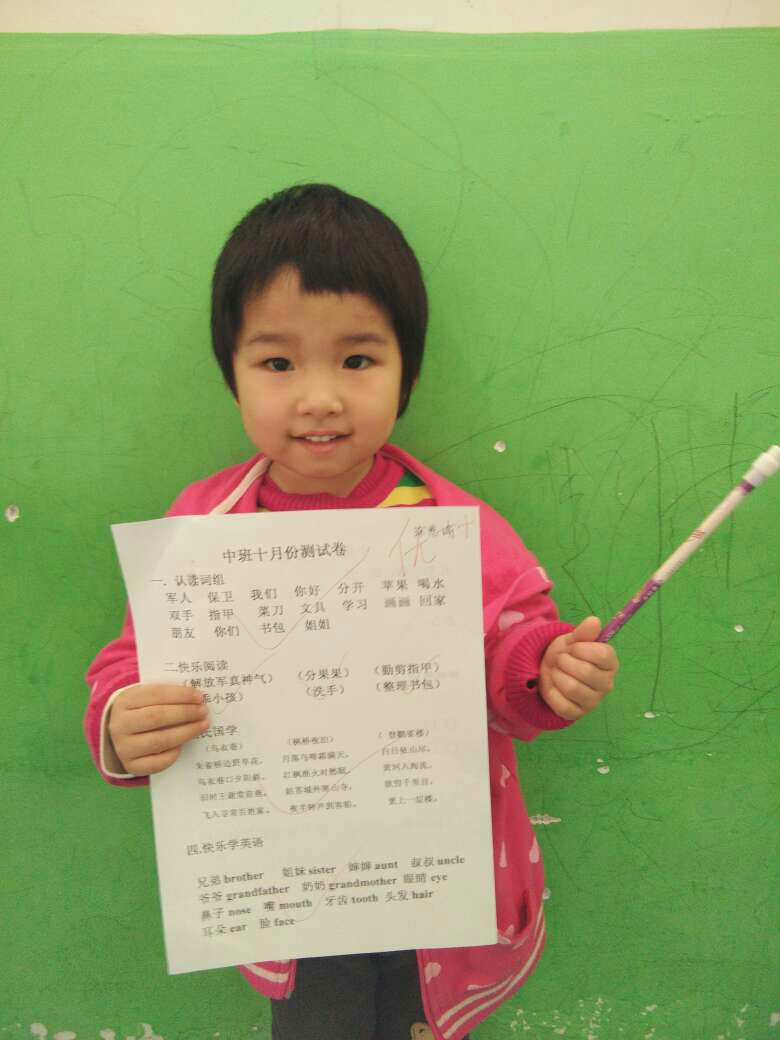 中班十月份测试卷 优+
一. 认读词组
军人 保卫 我们 你好 分开 苹果 喝水
双手 指甲 菜刀 文具 学习 画画 回家
朋友 你们 书包 姐姐
二快乐阅读
(解放军真神气) (分果果) (勤剪指甲)
乖小孩) (洗手) (整理书包)
氏国学
(乌衣巷) (枫桥夜泊) (登鹳雀楼)
朱雀桥边野草花, 月落乌啼霜满天, 白日依山尽,
乌衣巷口夕阳斜。 江枫渔火对愁眠。 黄河入海流。
旧时王谢堂前燕, 姑苏城外寒山寺, 欲穷千里目,
飞入寻常百姓家。 夜半钟声到客船。 更上一层楼。
四.快乐学英语
兄弟 brother 姐妹 sister 婶婶 aunt 叔叔 uncle
爷爷 grandfather 奶奶 grandmother 眼睛 eye
鼻子 nose 嘴 mouth 牙齿 tooth 头发 hair
耳朵 ear 脸 face